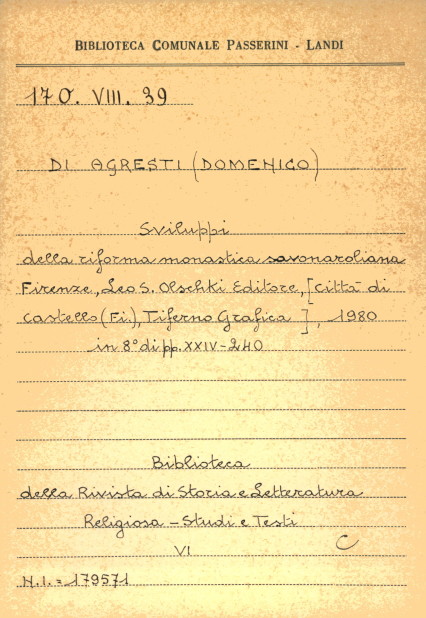 BIBLIOTECA COMUNALE PASSERINI - LANDI
170. VIII. 39
DI AGRESTI (DOMENICO)
Sviluppi
della riforma monastica savonaroliana
Firenze, Leo S. Olschki Editore, [Città di
Castello (Fi.), Tiferno Grafica ], 1980
in 8° di pp. XXIV-240
Biblioteca
della Rivista di Storia e Letteratura
Religiosa - Studi e Testi
VI
C
N.I. = 179571